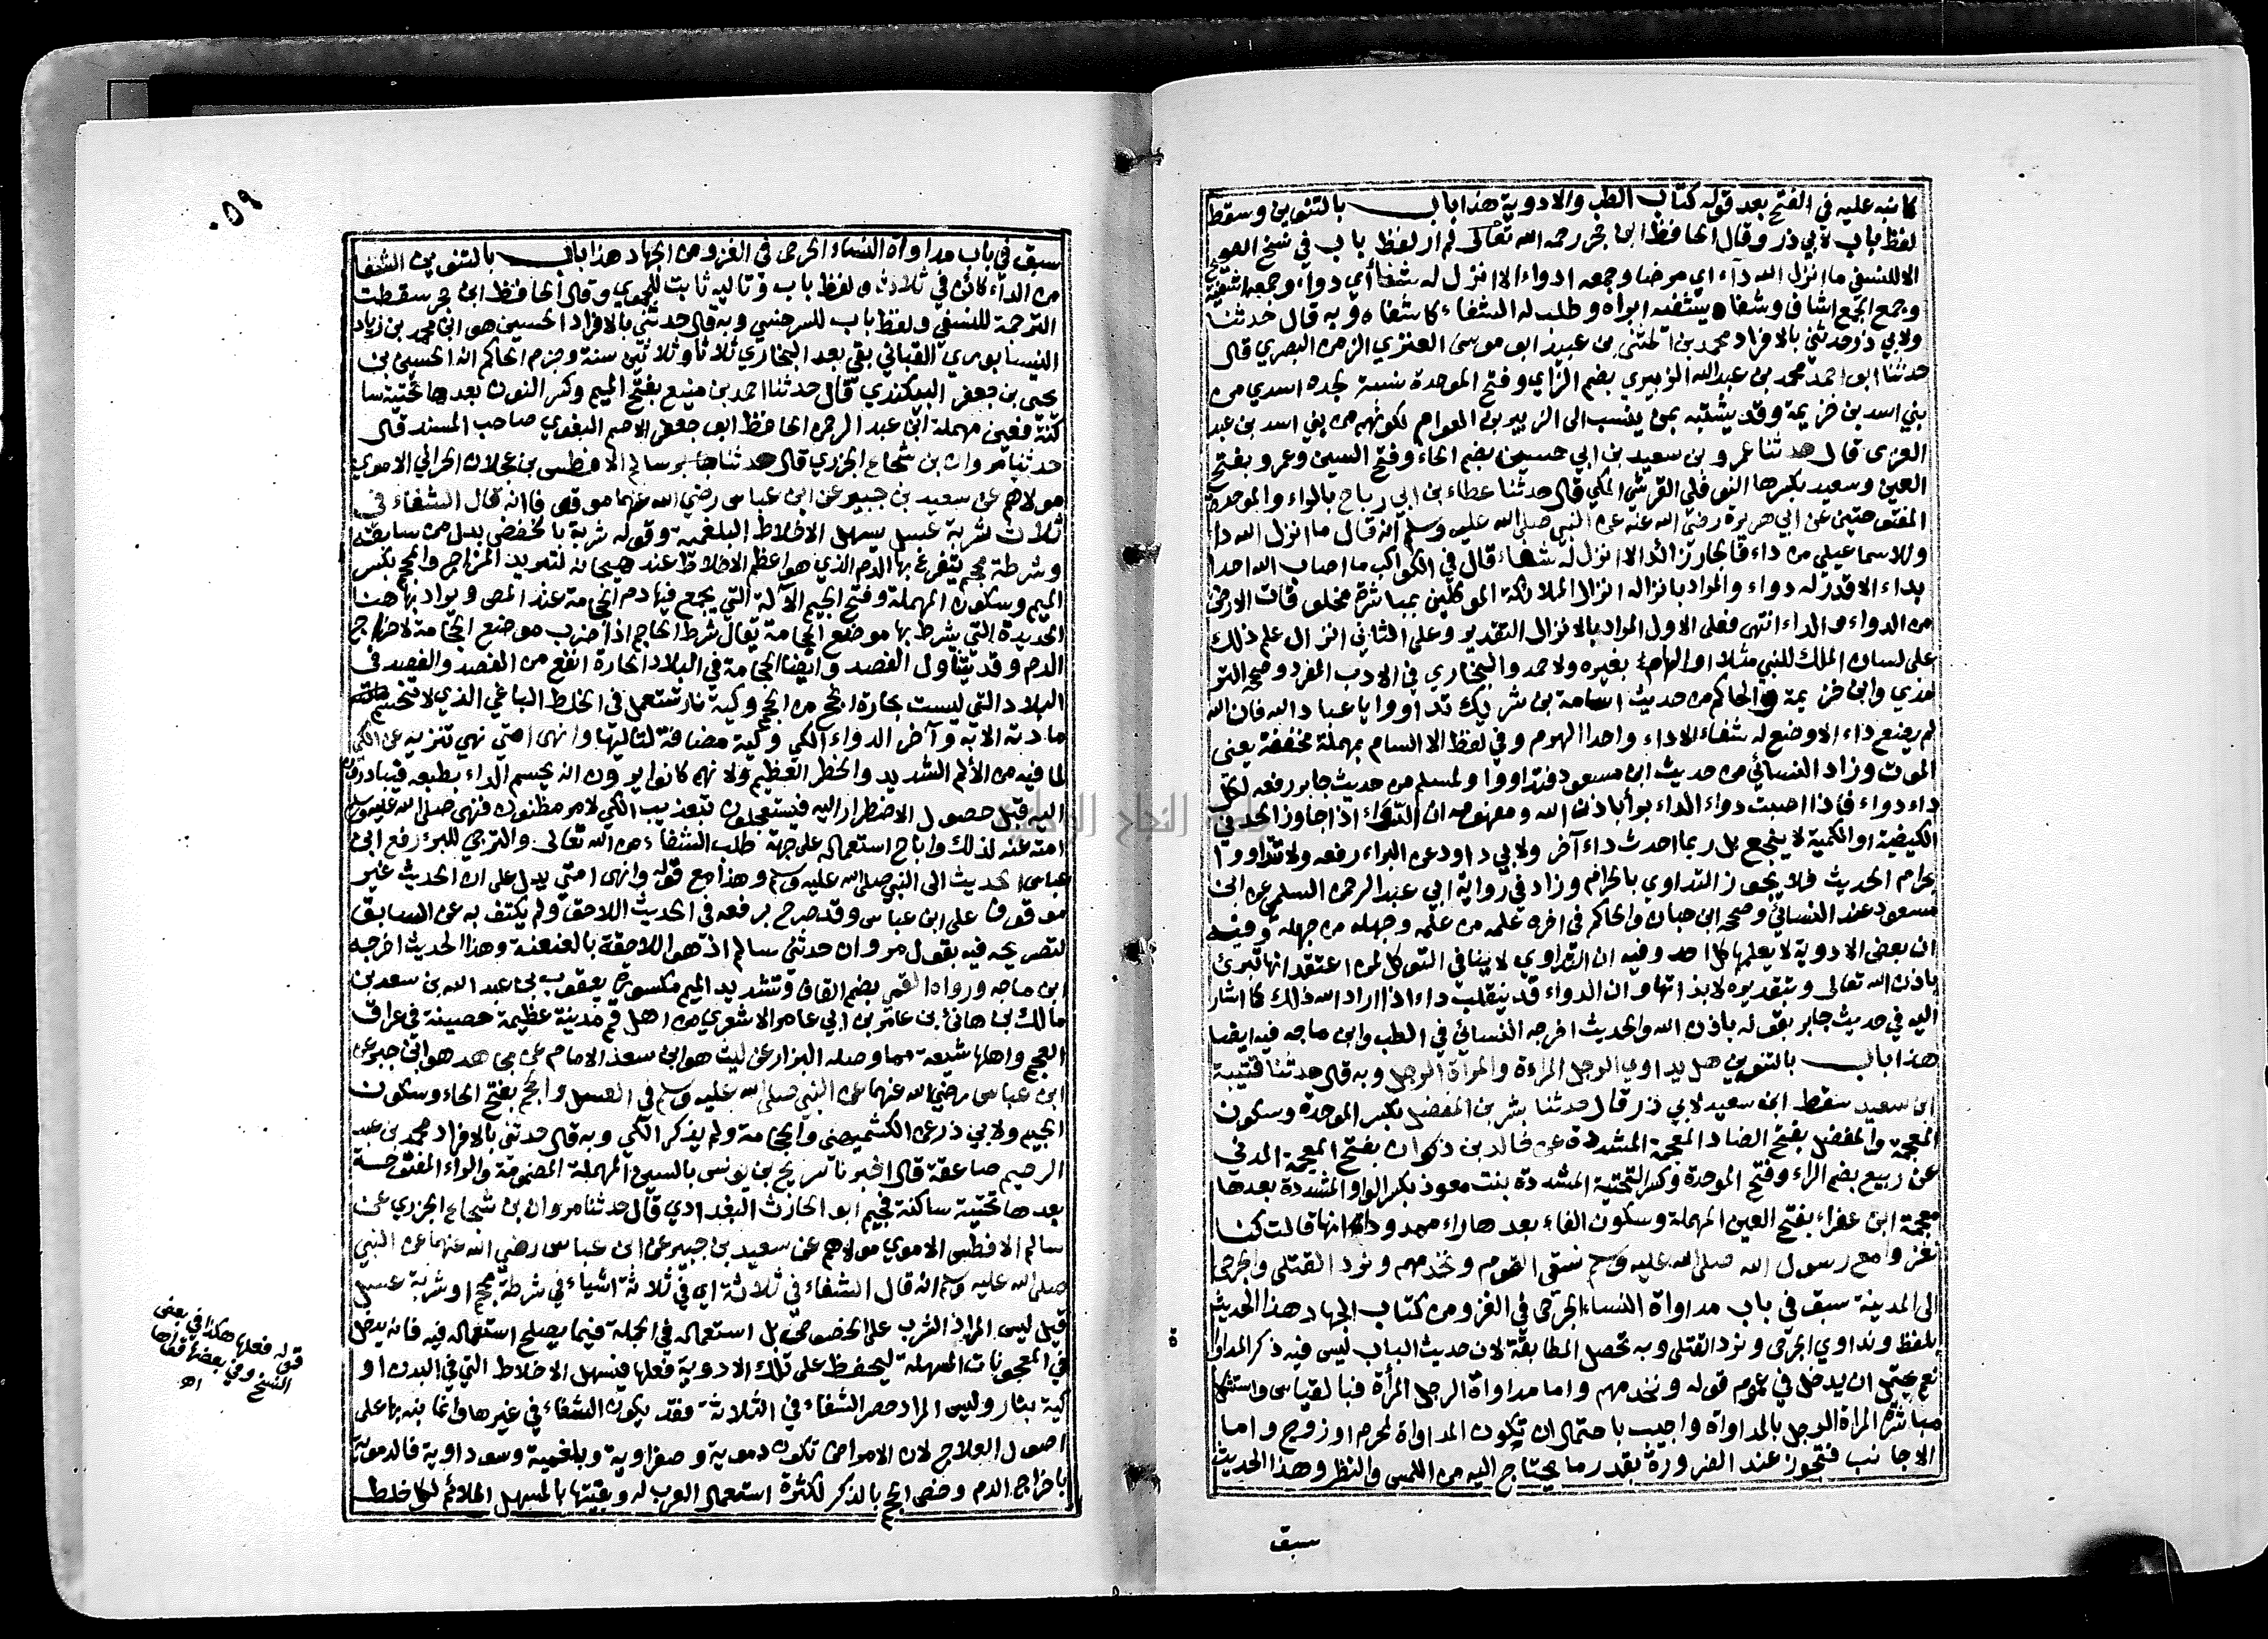 كما نبه عليه في الفتح بعد قوله كتاب الطب والادوية هذا باب بالتنوين وسقط
لفظ باب لابي ذر وقال الحافظ ابن حجر رحمه الله تعالى لم ار لفظ باب في نسخ الصحيح
الا للنسفي ما انزل الله داء اي مرضا وجمعه ادواء الا انزل له شفا أي دواء وجمعه اشفية
وجمع الجمع اشاف وشفاه يشفيه ابراه وطلب له الشفاء كاشفاه وبه قال حدثنا
ولابي ذر حدثني بالافراد محمد بن المثنى بن عبيد ابو موسى العنزي الزمن البصري قال
حدثنا ابو احمد محمد بن عبد الله الزبيري بضم الزاي وفتح الموحدة نسبة لجده اسدي من
بني اسد بن خزيمة وقد يشتبه بمن ينسب الى الزبير بن العوام لكونهم من بني اسد بن عبد
العزى قال حدثنا عمرو بن سعيد بن ابي حسين بضم الحاء وفتح السين وعمرو بفتح
العين وسعيد بكسرها النوفلي القرشي المكي قال حدثنا عطاء بن ابي رباح بالراء والموحدة
المفتوحتين عن ابي هريرة رضي الله عنه عن النبي صلى الله عليه وسلم انه قال ما انزل الله دا
وللاسماعيلي من داء فالجار زائد الا انزل له شفاء قال في الكواكب ما اصاب الله احدا
بداء الا قدر له دواء والمراد بانزاله انزال الملائكة الموكلين بمباشرة مخلوقات الارض
من الدواء والداء انتهى فعلى الاول المراد بالانزال التقدير وعلى الثاني انزال علم ذلك
على لسان الملك للنبي مثلا او الهام بغيره ولاحمد والبخاري في الادب المفرد وصححه التر
مذي وابن خزيمة والحاكم من حديث اسامة بن شريك تداووا يا عباد الله فان الله
لم يضع داء الا وضع له شفاء الا داء واحدا الهرم وفي لفظ الا السام بمهملة مخففة يعنى
الموت وزاد النسائي من حديث ابن مسعود فتداووا ولمسلم من حديث جابر رفعه لكل
داء دواء فاذا اصيب دواء الداء برأ باذن الله ومفهومه ان الدواء اذا جاوز الحد في
الكيفية او الكمية لا ينجع بل ربما احدث داء آخر ولابي داود عن ابي الدرداء رفعه ولا تتداووا
بحرام الحديث فلا يجوز التداوي بالحرام وزاد في رواية ابي عبد الرحمن السلمي عن ابن
مسعود عند النسائي وصححه ابن حبان والحاكم في اخره علمه من علمه وجهله من جهله وفيه
ان بعض الادوية لا يعلمها كل احد وفيه ان التداوي لا ينافي التوكل لمن اعتقد انها تبرئ
باذن الله تعالى وبتقديره لا بذاتها وان الدواء قد ينقلب داء اذا اراد الله ذلك كما اشار
اليه في حديث جابر بقوله باذن الله والحديث اخرجه النسائي في الطب وابن ماجه فيه ايضا
هذا باب بالتنوين هل يداوي الرجل المراة والمراة الرجل وبه قال حدثنا قتيبة
ابن سعيد سقط ابن سعيد لابي ذر قال حدثنا بشر بن المفضل بكسر الموحدة وسكون
المعجمة والمفضل بفتح الضاد المعجمة المشددة عن خالد بن ذكوان بفتح المعجمة المدني
عن ربيع بضم الراء وفتح الموحدة وكسر التحتية المشددة بنت معوذ بكسر الواو المشددة بعدها
معجمة ابن عفراء بفتح العين المهملة وسكون الفاء بعدها راء ممدودا انها قالت كنا
نغزو مع رسول الله صلى الله عليه وسلم نسقى القوم ونخدمهم ونرد القتلى والجرحى
الى المدينة سبق في باب مداواة النساء الجرحى في الغزو من كتاب الجهاد هذا الحديث
بلفظ ونداوي الجرحى ونرد القتلى وبه تحصل المطابقة لان حديث الباب ليس فيه ذكر المداواة
نعم يحتمل ان يدخل في عموم قوله ونخدمهم واما مداواة الرجل المرأة فبالقياس واستشكل
مباشرة المراة الرجل بالمداواة واجيب باحتمال ان تكون المداواة لمحرم او زوج واما
الاجانب فتجوز عند الضرورة بقدر ما يحتاج اليه من اللمس والنظر وهذا الحديث
سبق
٠٥٩
سبق في باب مداواة النساء الجرحى في الغزو من الجهاد هذا باب بالتنوين الشفا
من الداء كائن في ثلاث ولفظ باب وتاليه ثابت للحموي وقال الحافظ ابن حجر سقطت
الترجمة للنسفي ولفظ باب للسرخسي وبه قال حدثني بالافراد الحسين هو ابن محمد بن زياد
النيسابوري القباني بقي بعد البخاري ثلاثا وثلاثين سنة وجزم الحاكم انه الحسين بن
يحيى بن جعفر البيكندي قال حدثنا احمد بن منيع بفتح الميم وكسر النون بعدها تحتية سا
كنة فعين مهملة ابن عبد الرحمن الحافظ ابو جعفر الاصم البغوي صاحب المسند قال
حدثنا مروان بن شجاع الجزري قال حدثنا سالم الافطس بن عجلان الحراني الاموي
مولاهم عن سعيد بن جبير عن ابن عباس رضي الله عنهما موقوفا انه قال الشفاء في
ثلاث شربة عسل يسهل الاخلاط البلغمية وقوله شربة بالخفض بدل من سابقه
وشرطة محجم يتفرغ بها الدم الذي هو اعظم الاخلاط عند هيجانه لتبريد المزاج والمحجم بكسر
الميم وسكون المهملة وفتح الجيم الآلة التي يجمع فيها دم الحجامة عند المص ويراد بها هنا
الحديدة التي يشرط بها موضع الحجامة يقال شرط الحاجم اذا ضرب موضع الحجامة لاخراج
الدم وقد يتناول الفصد وايضا الحجامة في البلاد الحارة انفع من الفصد والفصد في
البلاد التي ليست بحارة انجح من الحجم وكية نار تستعمل في الخلط الباغي الذي لا تنحسم
مادته الا به وآخر الدواء الكي وكية مضافة لتاليها وانهى امتي نهي تنزيه عن الكي
لما فيه من الألم الشديد والخطر العظيم ولانهم كانوا يرون انه يحسم الداء بطبعه فيبادرون
اليه قبل حصول الاضطرار اليه فيستعجلون بتعذيب الكي لامر مظنون فنهى صلى الله عليه وسلم
امته عنه لذلك واباح استعماله على جهة طلب الشفاء من الله تعالى والترجي للبرء رفع ابن
عباس الحديث الى النبي صلى الله عليه وسلم وهذا مع قوله وانهى امتي يدل على ان الحديث غير
موقوف على ابن عباس وقد صرح برفعه في الحديث اللاحق ولم يكتف به عن السابق
لتصريحه فيه بقول مروان حدثني سالم اذ هو اللاحقة بالعنعنة وهذا الحديث اخرجه
ابن ماجه ورواه القمي بضم القاف وتشديد الميم مكسورة يعقوب بن عبد الله بن سعد بن
مالك بن هانئ بن عامر بن ابي عامر الاشعري من اهل قم مدينة عظيمة حصينة في عراق
العجم واهلها شيعة مما وصله البزار عن ليث هو ابن سعد الامام عن مجاهد هو ابن جبر عن
ابن عباس رضي الله عنهما عن النبي صلى الله عليه وسلم في العسل والحجم بفتح الحاء وسكون
الجيم ولابي ذر عن الكشميهني والحجامة ولم يذكر الكي وبه قال حدثني بالافراد محمد بن عبد
الرحيم صاعقة قال اخبرنا سريج بن يونس بالسين المهملة المضمومة والراء المفتوحة
بعدها تحتية ساكنة فجيم ابو الحارث البغدادي قال حدثنا مروان بن شجاع الجزري عن
سالم الافطس الاموي مولاهم عن سعيد بن جبير عن ابن عباس رضي الله عنهما عن النبي
صلى الله عليه وسلم انه قال الشفاء في ثلاثة اي في ثلاثة اشياء في شرطة محجم او شربة عسل
قيل ليس المراد الشرب على الخصوص بل استعماله في الجملة فيما يصلح استعماله فيه فانه يدخل
في المعجونات المسهلة ليحفظ على تلك الادوية فعلها فيسهل الاخلاط التي في البدن او
كية بنار وليس المراد حصر الشفاء في الثلاثة فقد يكون الشفاء في غيرها وانما نبه بها على
اصول العلاج لان الامراض تكون دموية وصفراوية وبلغمية وسوداوية فالدموية
باخراج الدم وخص الحجم بالذكر لكثرة استعمال العرب له وبقيتها بالمسهل الملائم لكل خلط
قوله فعلها هكذا في بعض
النسخ وفي بعضها قواها
اهـ